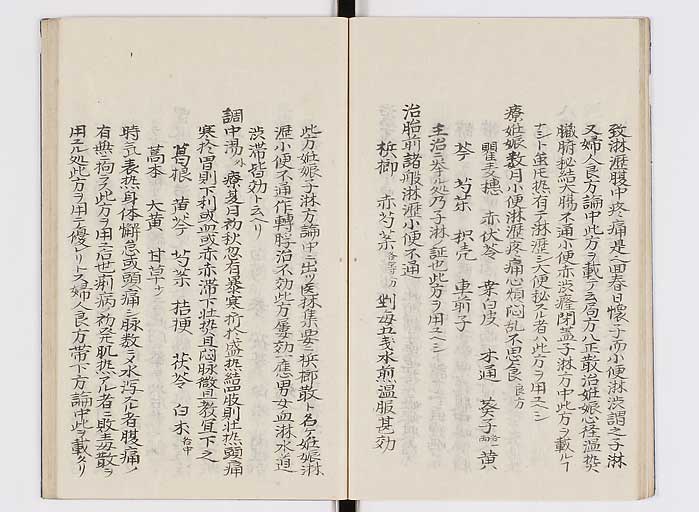 致淋瀝腹中疼痛是之回春曰懐子而小便淋渋謂之子淋
又婦人良方論中此方ヲ載テ云局方八正散治妊娠心径温熱
臓腑秘結大腸不通小便赤渋癃閉蓋子淋ノ方中此方ヲ載ルフ
ナシト虽氏热有テ淋瀝シ大便秘スル者ハ此方ヲ用ユヘシ
療妊娠数月小便淋瀝疼痛心煩悶乱不思食 良方
瞿麦穂 赤伏苓 桒白皮 木通 葵子 黄
芩 芍茱 枳壳 車前子
主治ニ挙ル処乃子淋ノ証也此方ヲ用ユヘシ
治胎前諸般淋瀝小便不通
梹榔 赤芍茱 剉毎五戋水煎温服甚効
此方妊娠子淋方論中ニ出ツ医林集要ニ梹榔散ト名ケ妊娠淋
瀝小便不通作轉脬治不効此方屡効一應男女血淋水道
渋滞皆効ト云ヘリ
調中湯 療夏月初秋忽有暴寒折於盛热結四肢則壮热頭痛
寒於胃則下利或血或赤赤滞下壮热且悶脉微且数宜下之
葛根 黄芩 芍茱 桔梗 茯苓 白朮
藁本 大黄 甘草
時气表热身体懈怠或頭痛シ脉数ニシテ水泻スル者腹痛ノ
有無ニ拘ラス此方ヲ用ユ后世痢病ノ初発肌热スル者ニ敗毒散ヲ
用ユル処此方ヲ用テ優レリトス婦人良方帯下方論中此ヲ載タリ